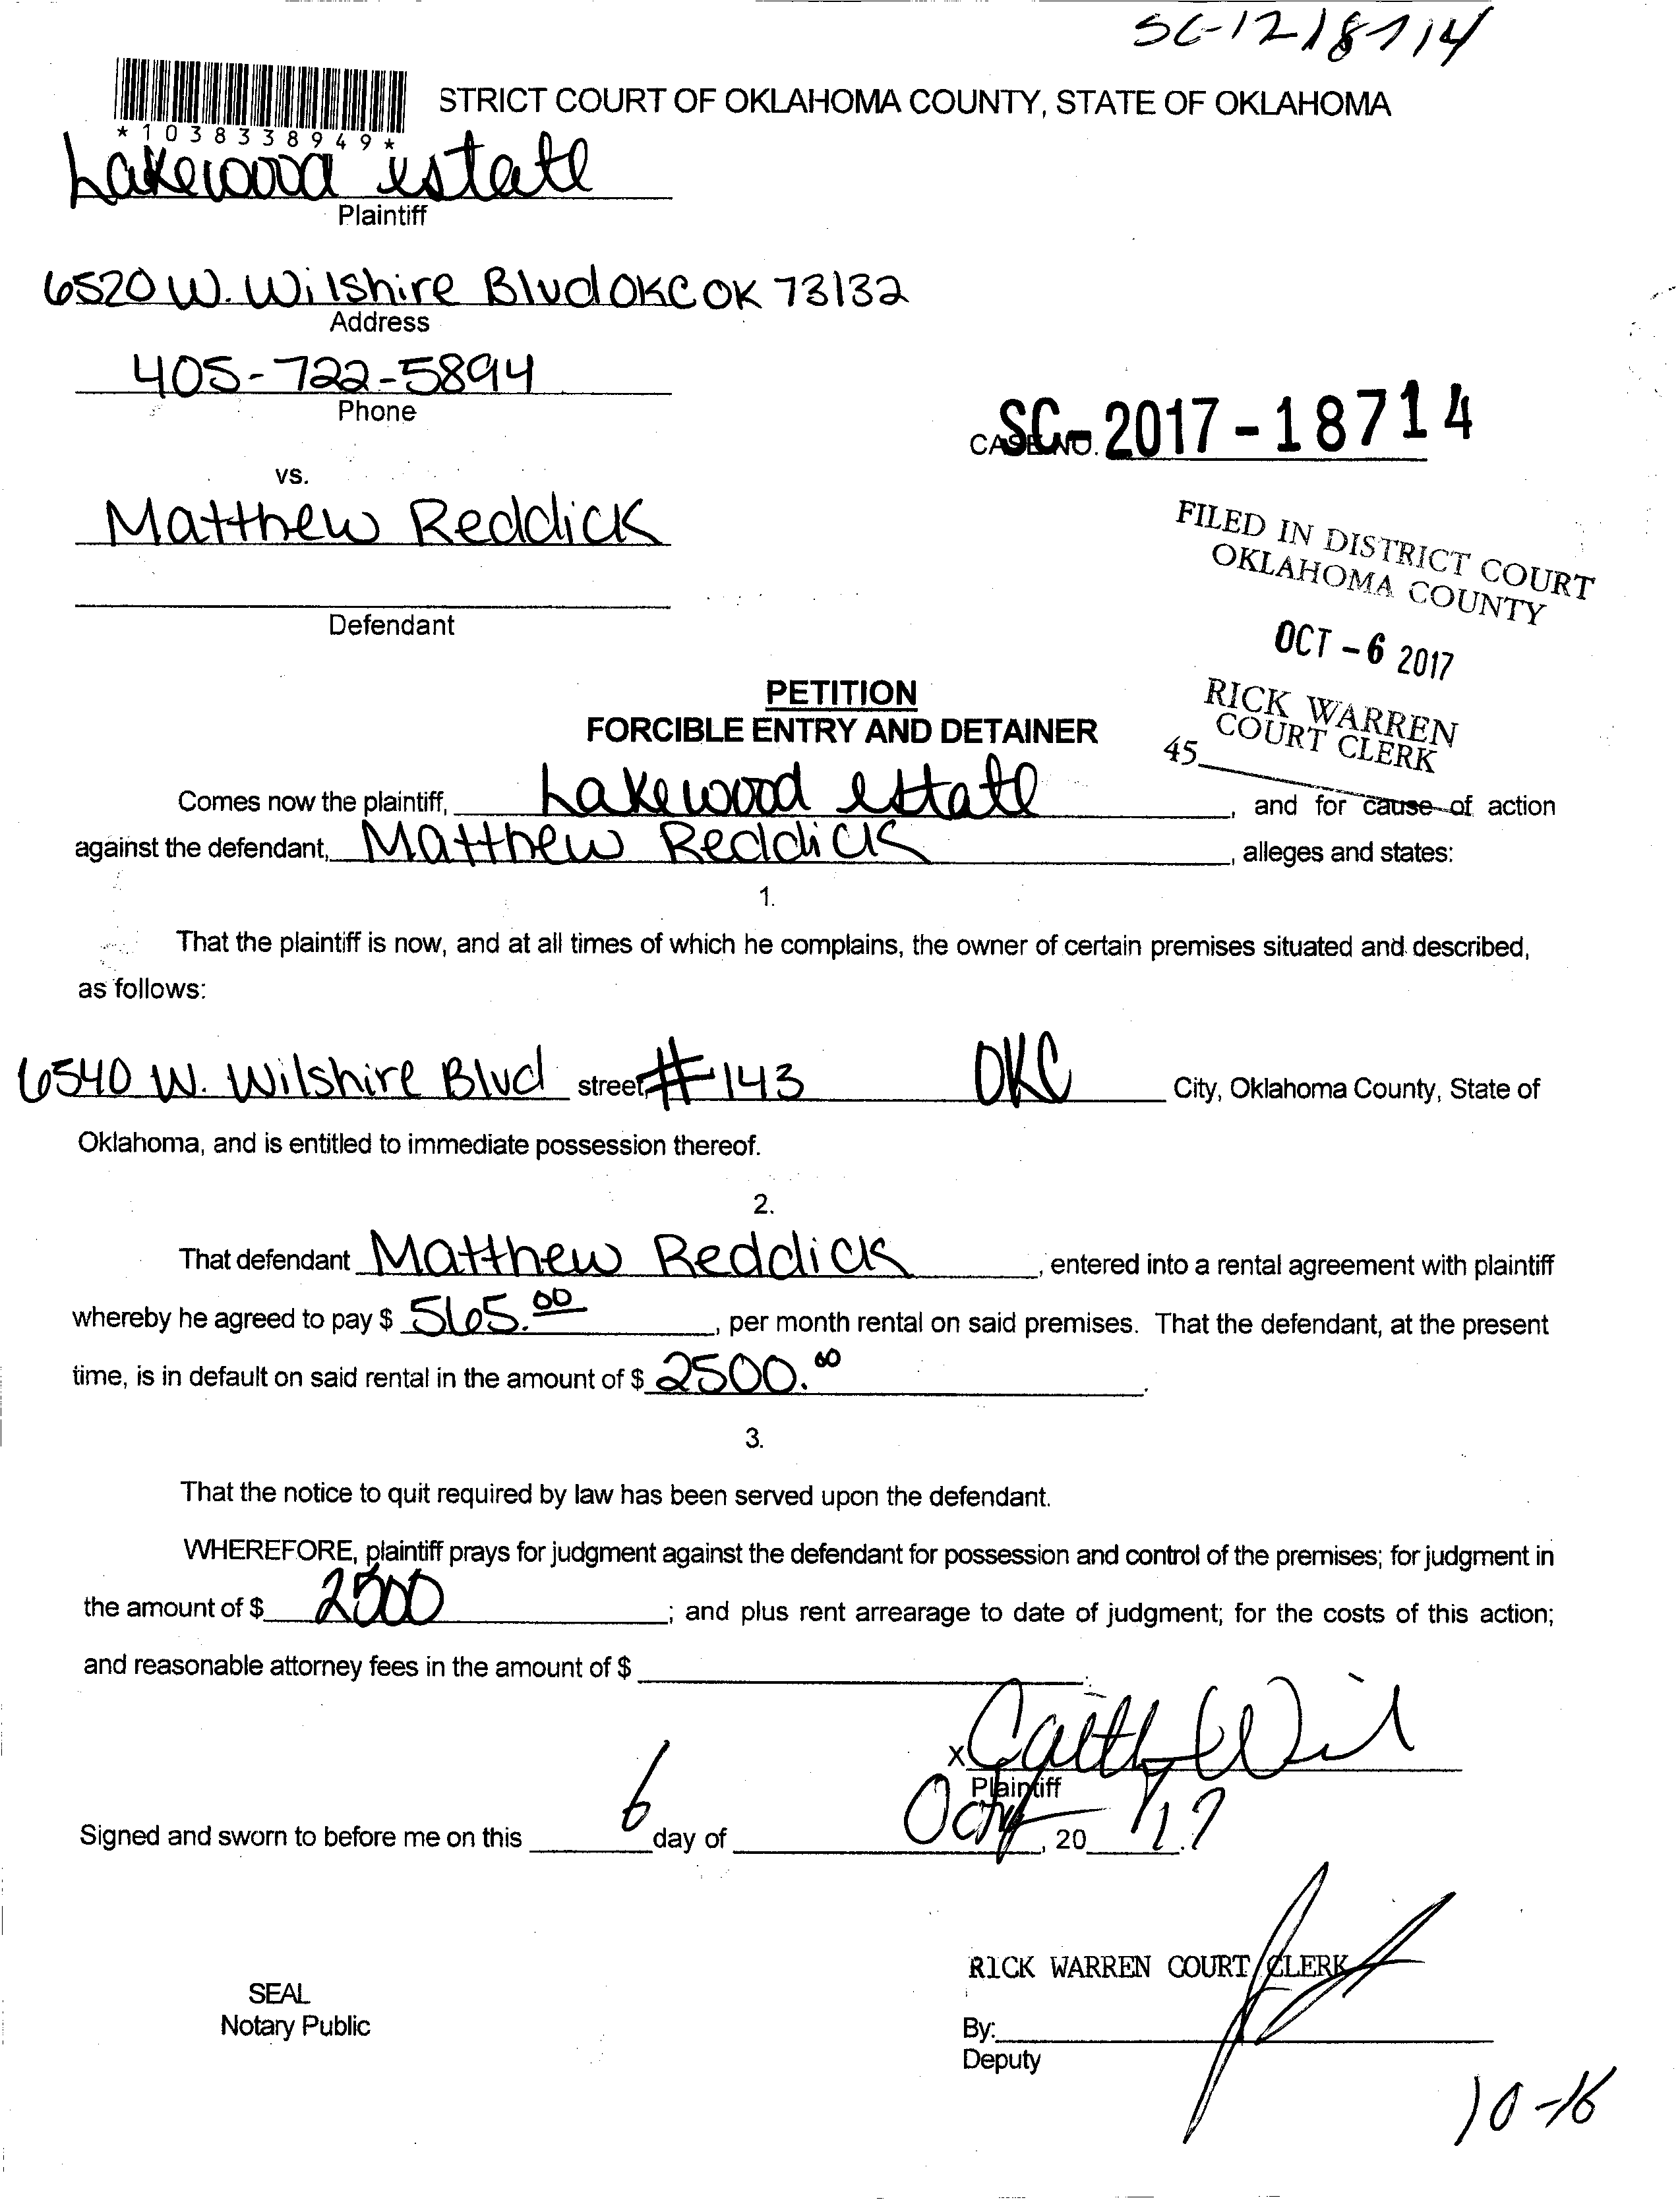 SC-1218714
*1038338949*
STRICT COURT OF OKLAHOMA COUNTY, STATE OF OKLAHOMA
Lakewood estate
Plaintiff
6520 W. Wilshire Blvd OKC OK 73132
Address
405-722-5894
Phone
CASE NO. SC-2017-18714
vs.
Matthew Reddick
Defendant
FILED IN DISTRICT COURT
OKLAHOMA COUNTY
OCT -6 2017
RICK WARREN
COURT CLERK
45
PETITION
FORCIBLE ENTRY AND DETAINER
Comes now the plaintiff, Lakewood estate, and for cause of action
against the defendant, Matthew Reddick, alleges and states:
1.
That the plaintiff is now, and at all times of which he complains, the owner of certain premises situated and described,
as follows:
6540 W. Wilshire Blvd street, #143 OKC City, Oklahoma County, State of
Oklahoma, and is entitled to immediate possession thereof.
2.
That defendant Matthew Reddick, entered into a rental agreement with plaintiff
whereby he agreed to pay $ 565.00, per month rental on said premises. That the defendant, at the present
time, is in default on said rental in the amount of $ 2500.00.
3.
That the notice to quit required by law has been served upon the defendant.
WHEREFORE, plaintiff prays for judgment against the defendant for possession and control of the premises; for judgment in
the amount of $ 2500; and plus rent arrearage to date of judgment; for the costs of this action;
and reasonable attorney fees in the amount of $
X
Plaintiff
Signed and sworn to before me on this 6 day of Oct, 20 17
RICK WARREN COURT CLERK
SEAL
Notary Public
By:
Deputy
10-16